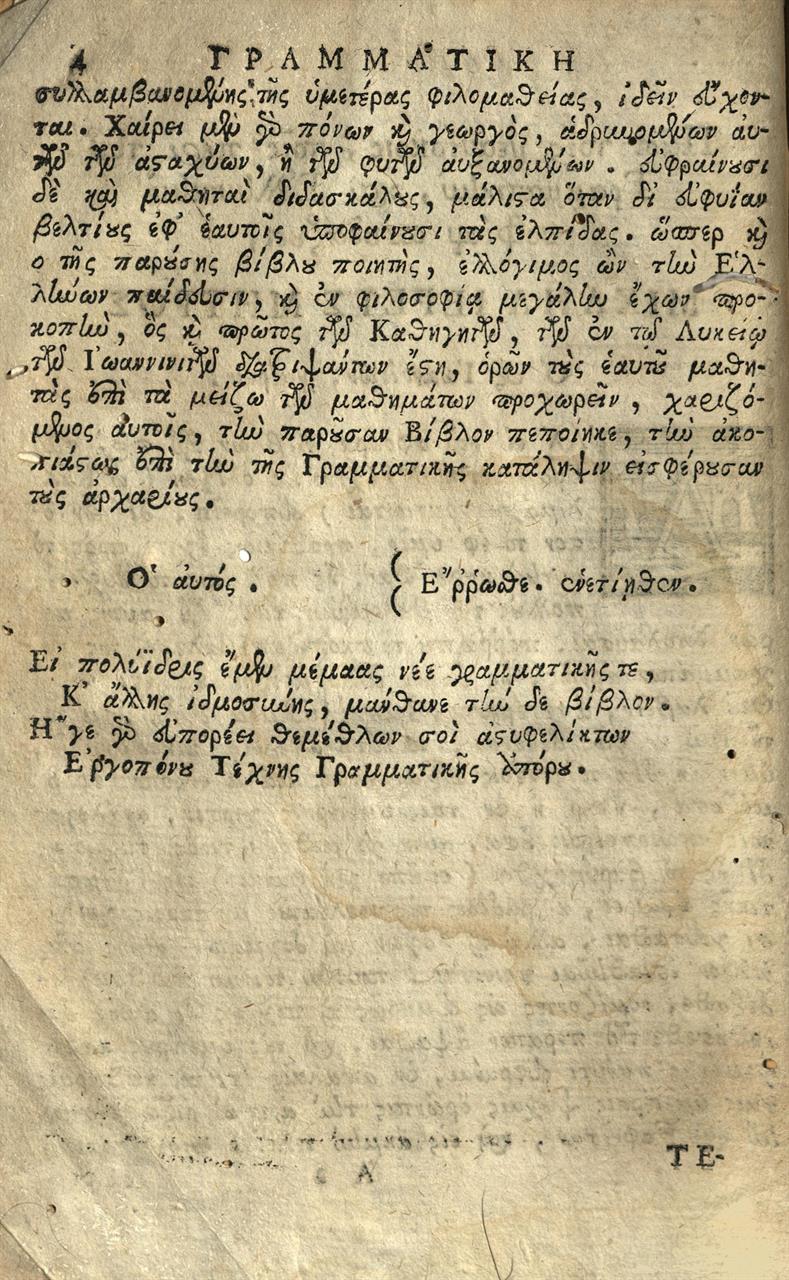 4 ΓΡΑΜΜΑΤΙΚΗ
συλλαμβανομένης τῆς ὑμετέρας φιλομαθείας, ἰδεῖν εὔχον-
ται. Χαίρει μὲν γὰρ πόνων καὶ γεωργὸς, ἁδρυνομένων αὐ-
τῶν τῶν ἀσταχύων, ἢ τῶν φυτῶν αὐξανομένων. εὐφραίνουσι
δὲ καὶ μαθηταὶ διδασκάλους, μάλιστα ὅταν δι' εὐφυΐαν
βελτίους ἐφ' ἑαυτοῖς ὑποφαίνουσι τὰς ἐλπίδας. ὥσπερ καὶ
ο τῆς παρούσης βίβλου ποιητὴς, ἐλλόγιμος ὢν τὴν Ἑλ-
λήνων παίδευσιν, καὶ ἐν φιλοσοφίᾳ μεγάλην ἔχων προ-
κοπὴν, ὃς καὶ πρῶτος τῶν Καθηγητῶν, τῶν ἐν τῷ Λυκείῳ
τῶν Ἰωαννινιτῶν διατριψάντων ἔστη, ὁρῶν τοὺς ἑαυτοῦ μαθη-
τὰς ἐπὶ τὰ μείζω τῶν μαθημάτων προχωρεῖν, χαριζό-
μενος αὐτοῖς, τὴν παροῦσαν Βίβλον πεποίηκε, τὴν ἀκο-
πιάστως ἐπὶ τὴν τῆς Γραμματικῆς κατάληψιν εἰσφέρουσαν
τοὺς ἀρχαρίους.
Ὁ αὐτός. { Ἔῤῥωσθε. ἐνετίηθεν.
Εἰ πολύϊδρις ἔμεν μέμαας νέε γραμματικῆς τε,
Κ' ἄλλης ἰδμοσύνης, μάνθανε τὴν δε βίβλον.
Ἥ γε γὰρ εὐπορέει θεμέθλων σοὶ ἀστυφελίκτων
Ἐργοπόνου Τέχνης Γραμματικῆς εὐπόρου.
ΤΕ-